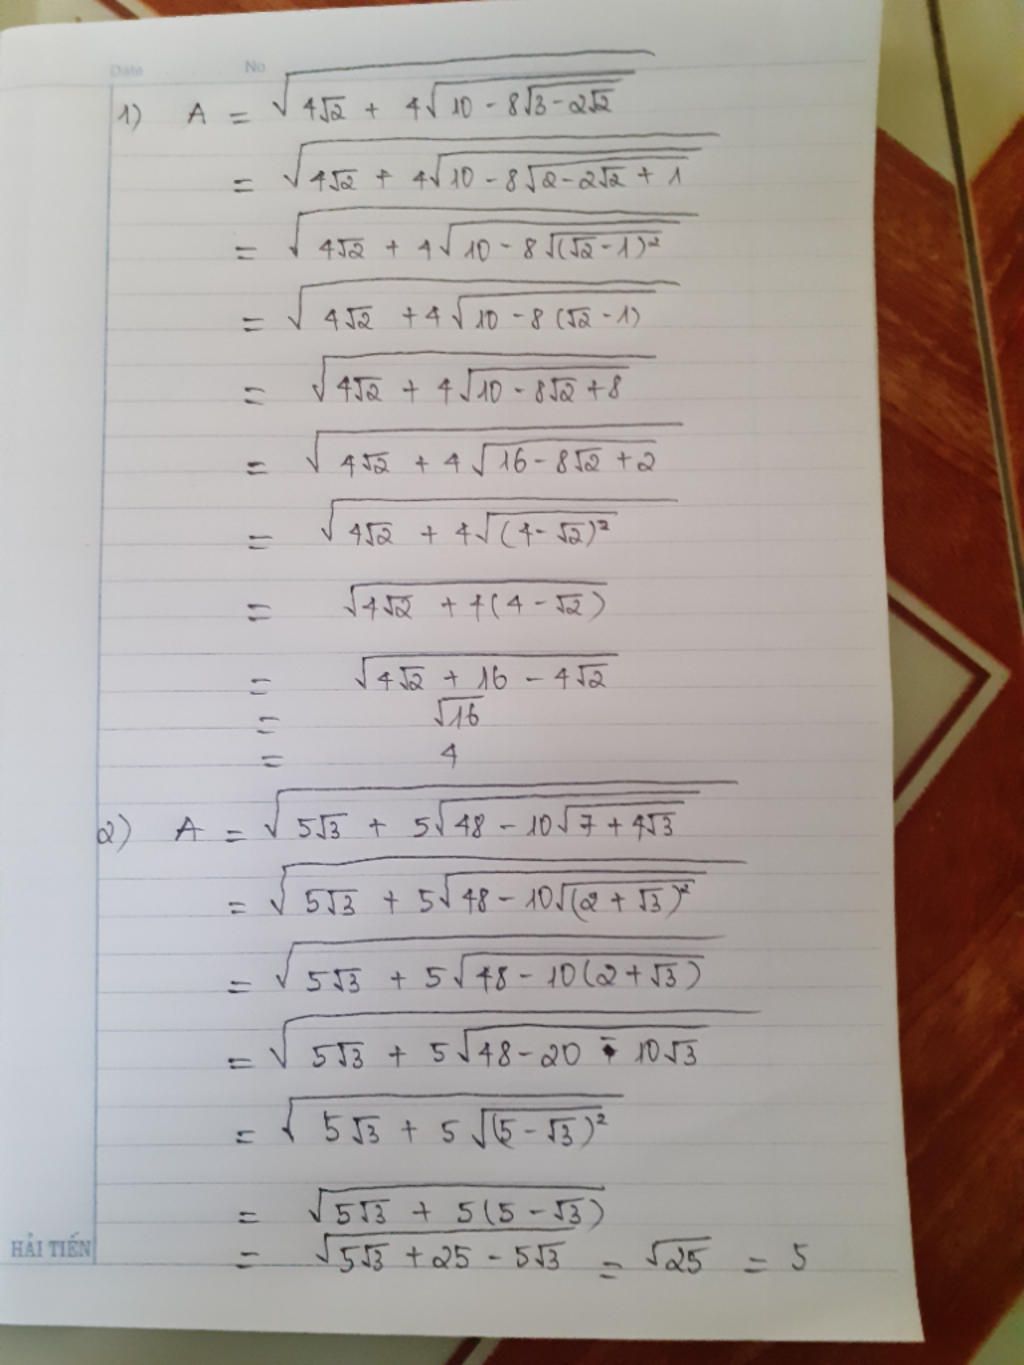 Date No
1) A = √(4√2 + 4√(10 - 8√(3 - 2√2)))
= √(4√2 + 4√(10 - 8√(2 - 2√2 + 1)))
= √(4√2 + 4√(10 - 8√((√2 - 1)²)))
= √(4√2 + 4√(10 - 8(√2 - 1)))
= √(4√2 + 4√(10 - 8√2 + 8))
= √(4√2 + 4√(16 - 8√2 + 2))
= √(4√2 + 4√((4 - √2)²))
= √(4√2 + 4(4 - √2))
= √(4√2 + 16 - 4√2)
= √16
= 4
2) A = √(5√3 + 5√(48 - 10√(7 + 4√3)))
= √(5√3 + 5√(48 - 10√((2 + √3)²)))
= √(5√3 + 5√(48 - 10(2 + √3)))
= √(5√3 + 5√(48 - 20 - 10√3))
= √(5√3 + 5√((5 - √3)²))
= √(5√3 + 5(5 - √3))
= √(5√3 + 25 - 5√3) = √25 = 5
HẢI TIẾN